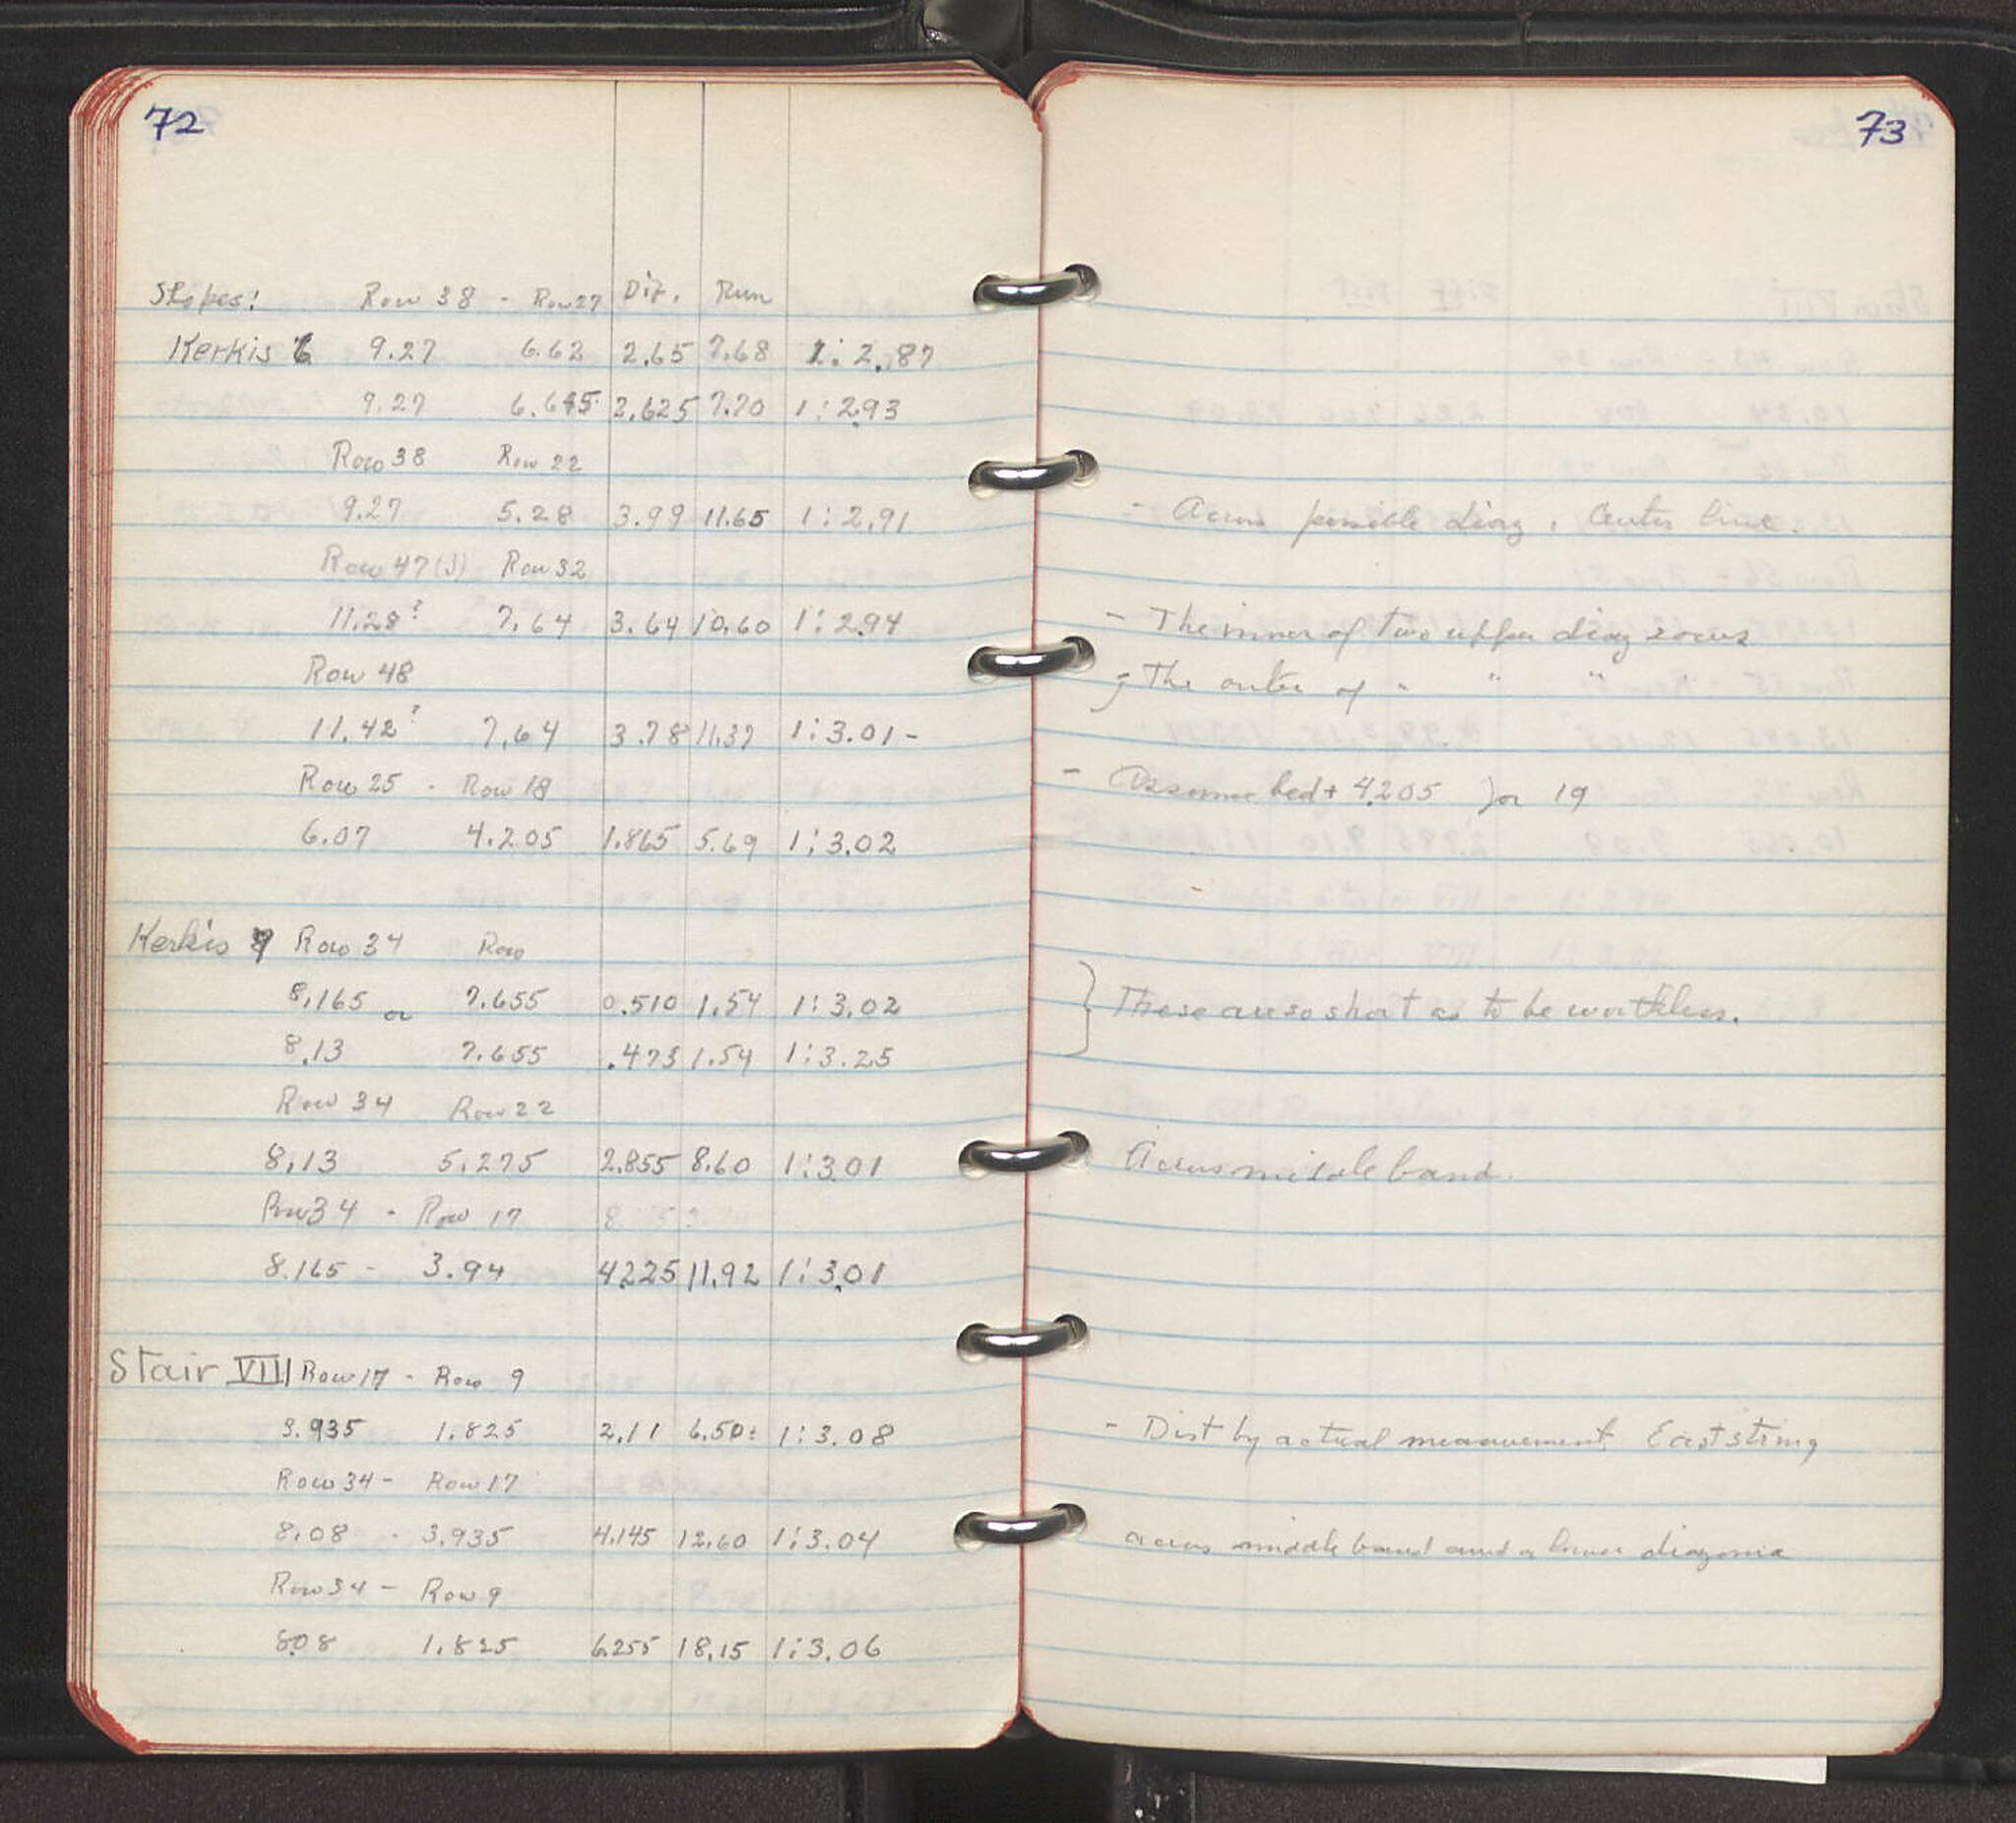 72
Slopes: Row 38 - Row 27 Dif. Run
Kerkis 6 9.27 6.62 2.65 7.68 1:2.87
9.27 6.645 2.625 7.70 1:2.93
Row 38 Row 22
9.27 5.28 3.99 11.65 1:2.91
Row 47(3) Row 32
11.28? 7.64 3.64 10.60 1:2.94
Row 48
11.42? 7.64 3.78 11.37 1:3.01-
Row 25 - Row 18
6.07 4.205 1.865 5.69 1:3.02
Kerkis 7 Row 34 Row
8.165 or 7.655 0.510 1.54 1:3.02
8.13 7.655 .473 1.54 1:3.25
Row 34 Row 22
8.13 5.275 2.855 8.60 1:3.01
Row 34 - Row 17
8.165 - 3.94 4.225 11.92 1:3.01
Stair VIII Row 17 - Row 9
3.935 1.825 2.11 6.50± 1:3.08
Row 34 - Row 17
8.08 - 3.935 4.145 12.60 1:3.04
Row 34 - Row 9
8.08 1.825 6.255 18.15 1:3.06
73
- Across possible diaz. Center line.
- The inner of two upper diaz rows
- The outer of " " "
- Assume bed + 4.205 for 19
} These are so short as to be worthless.
Across middle band.
- Dist by actual measurement East string
across middle band and a lower diazoma